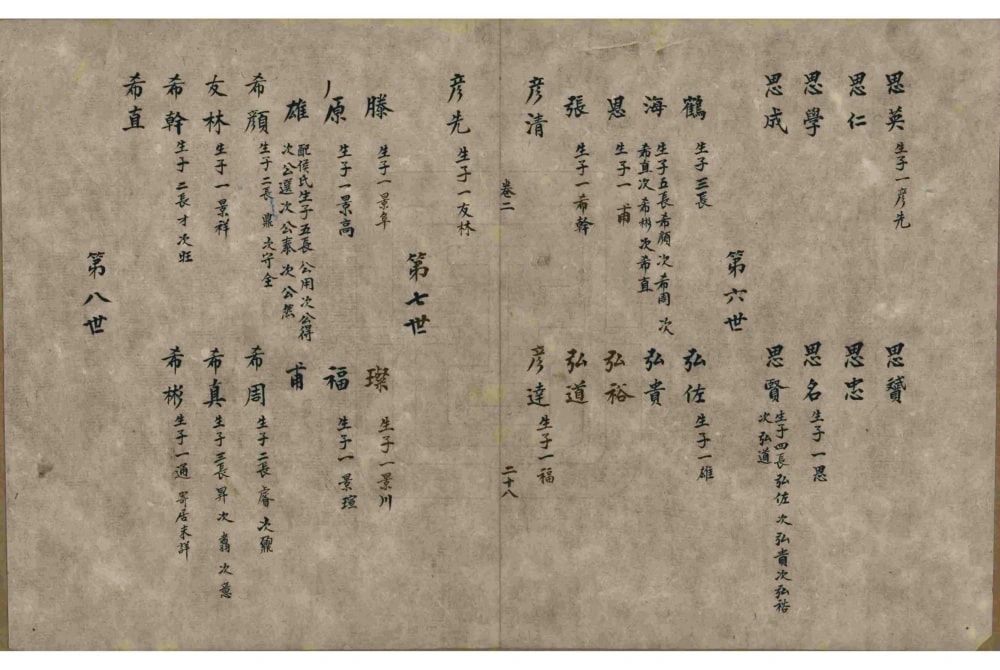 思英 生子一彦先
思贇
思仁
思忠
思學
思名 生子一恩
思成
思賢 生子四長弘佐次弘貴次弘裕
次弘道
第六世
鶴 生子三長
弘佐 生子一雄
海 生子五長希顔次希周次
希直次希彬次希直
弘貴
恩 生子一甫
弘裕
張 生子一希幹
弘道
彦清
彦達 生子一福
卷二
二十八
彦先 生子一友林
第七世
滕 生子一景阜
璨 生子一景川
原 生子一景高
福 生子一景瑄
雄 配侯氏生子五長公用次公得
次公選次公奉次公然
甫
希顔 生子二長鼎次守全
希周 生子二長睿次鼐
友林 生子一景祥
希真 生子三長昇次翥次
希幹 生子二長才次旺
希彬 生子一通寄居未詳
希直
第八世